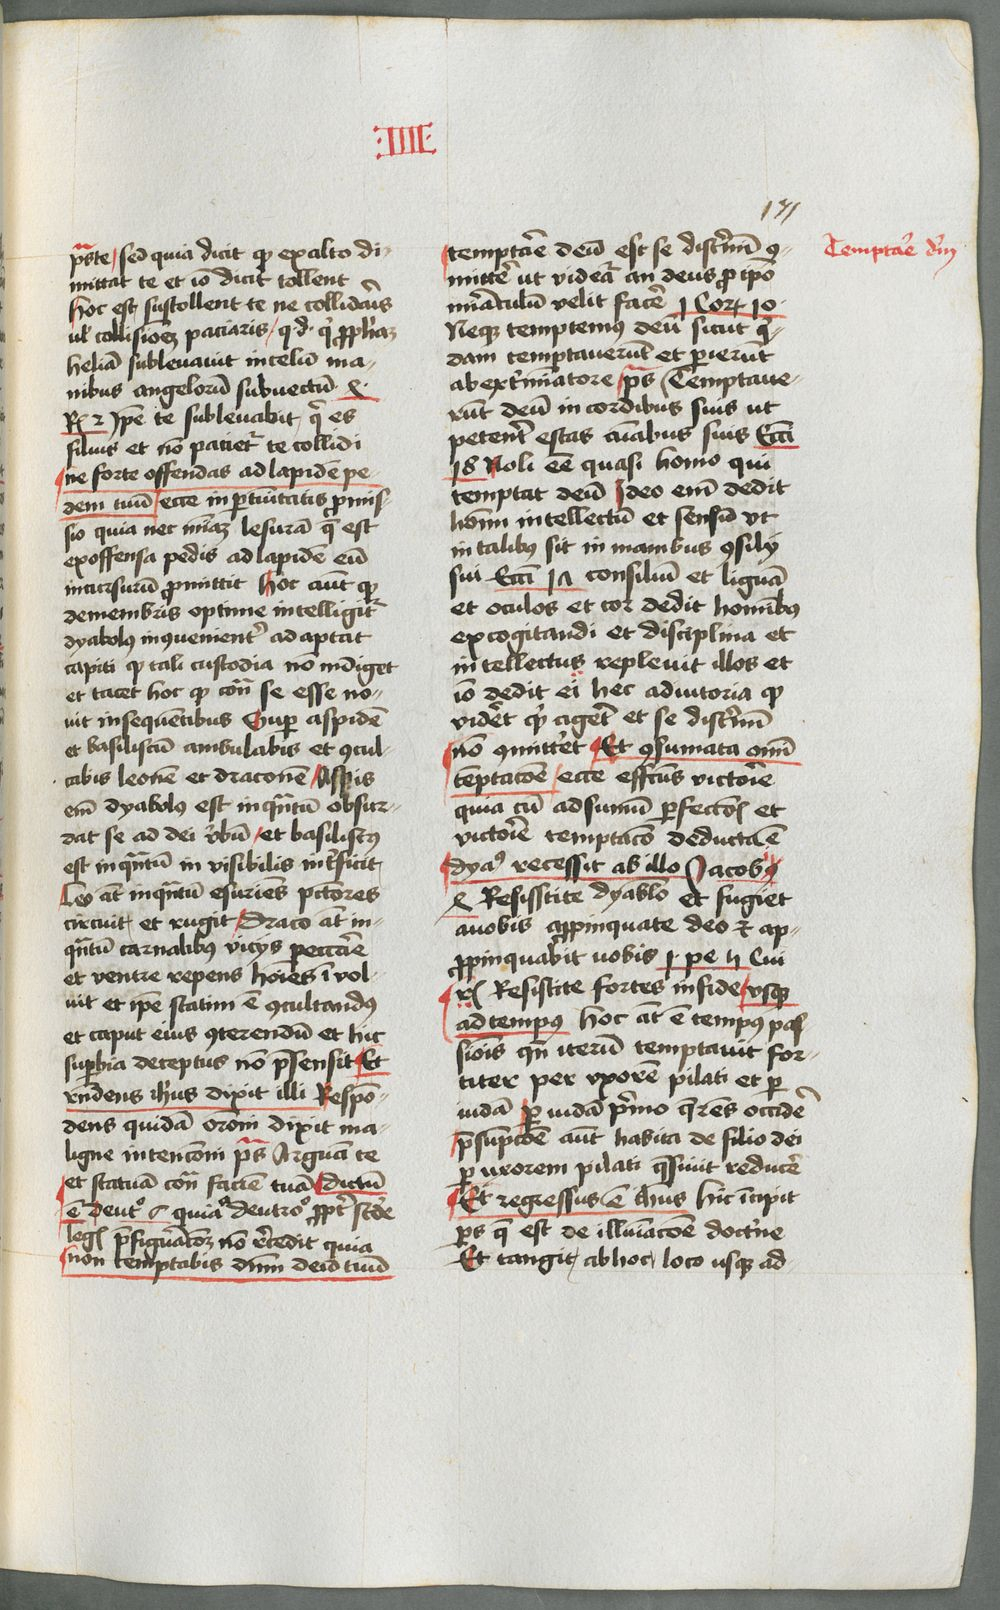 :IIII:
171
p̄ste / sed quia dicit ꝙ ex alto di-
mittat te et iō dicit tollent
hoc est sustollent te ne collidaris
ul̄ collisioēȝ paciaris / q. d.
heliā sublevavit in celū ma-
nibus angelorū subvectū 4
Rꝭ 2 Ip̄e te sublevabit / q̄ es
filius et nō patiet᷑ te collidi
ne forte offendas ad lapidē pe-
dem tuū / ecce importūitatis ꝓmis-
sio quia nec minīaȝ lesurā q̄ est
ex offensa pedis ad lapidē eū
incursurū ꝓmittit hoc aut̄ ꝙ
de membris optime intelligit᷑
dyabolus inꝯvenient̄ adaptat
capiti ꝙ tali custodia nō indiget
et tacet hoc ꝙ cont̄ se esse no-
vit in sequētibus Sup̄ aspidē
et basiliscū ambulabis et ꝯcul-
cabis leonē et draconē / Aspis
em̄ dyabolus est inq̄ntū obsur-
dat se ad dei v̄bū / et basiliscus
est inq̄ntū invisibilis int̄ficit
Leo at̄ inq̄ntū esuries pctores
circuit et rugit / Draco at̄ in-
q̄ntū carnalibus viciis peccare
et ventre repens hoīes ī vol-
vit et ip̄e statim ē ꝯculcandꝰ
et caput eius ꝯterendū et hic
sup̄bia deceptus nō p̄sensit / Et
rn̄dens ih̄us dixit illi Respō-
dens quidā oroni dixit ma-
ligne intenconi p̄s Arguā te
et statuā cont̄ faciē tuā / Dictū
ē Deut̊ 6 quia a deutro
legꝭ p̄figuracōeȝ nō recedit quia
non temptabis dn̄m deū tuū
temptare deū est se discrimī ꝯ-
mittere ut videat᷑ an deus ꝓ ip̄o
miraculū velit facere 1 Cor 10
Neqȝ temptemꝰ deū sicut q̄-
dam temptaverūt et perierūt
ab exterminatore p̄s Temptave-
rūt deū in cordibus suis ut
peterent escas aīabus suis Ecci
18 Noli eē quasi homo qui
temptat deū Ideo em̄ dedit
homī intellectū et sensū ut
in talibꝰ sit in manibus ꝯsilij
sui Ecci 17 consiliū et liguā
et oculos et cor dedit hominibꝰ
excogitandi et disciplina et
intellectus replevit illos et
iō dedit ei hec adiutoria ꝙ
videret q̄ ageret et se discrimī
nō ꝯmitteret / Et ꝯsumata omī
temptacōe / ecce effectus victorie
quia cū ad sūmū perfectōis et
victorie temptacō deducta ē
dyaꝰ recessit ab illo Jacobi
4 Resistite dyabolo et fugiet
a vobis appinquate deo et ap-
propinquabit vobis 1 pe 5 Cui
rꝭ Resistite fortes in fide / usqȝ
ad tempꝰ hoc at̄ ē tempꝰ pas
sionis qn̄ iterū temptavit for-
titer per uxorē pilati et per
iudā per iudā primo q̄rēs occidere
p̄sumpcōe aut̄ habita de filio dei
per uxorem pilati q̄sivit reducere
Et regressus ē ih̄us hic incipit
p̄s q̄ est de illuiacōe doctrine
Et tangit / ab hoc / loco usqȝ ad-
Temptare dm̄